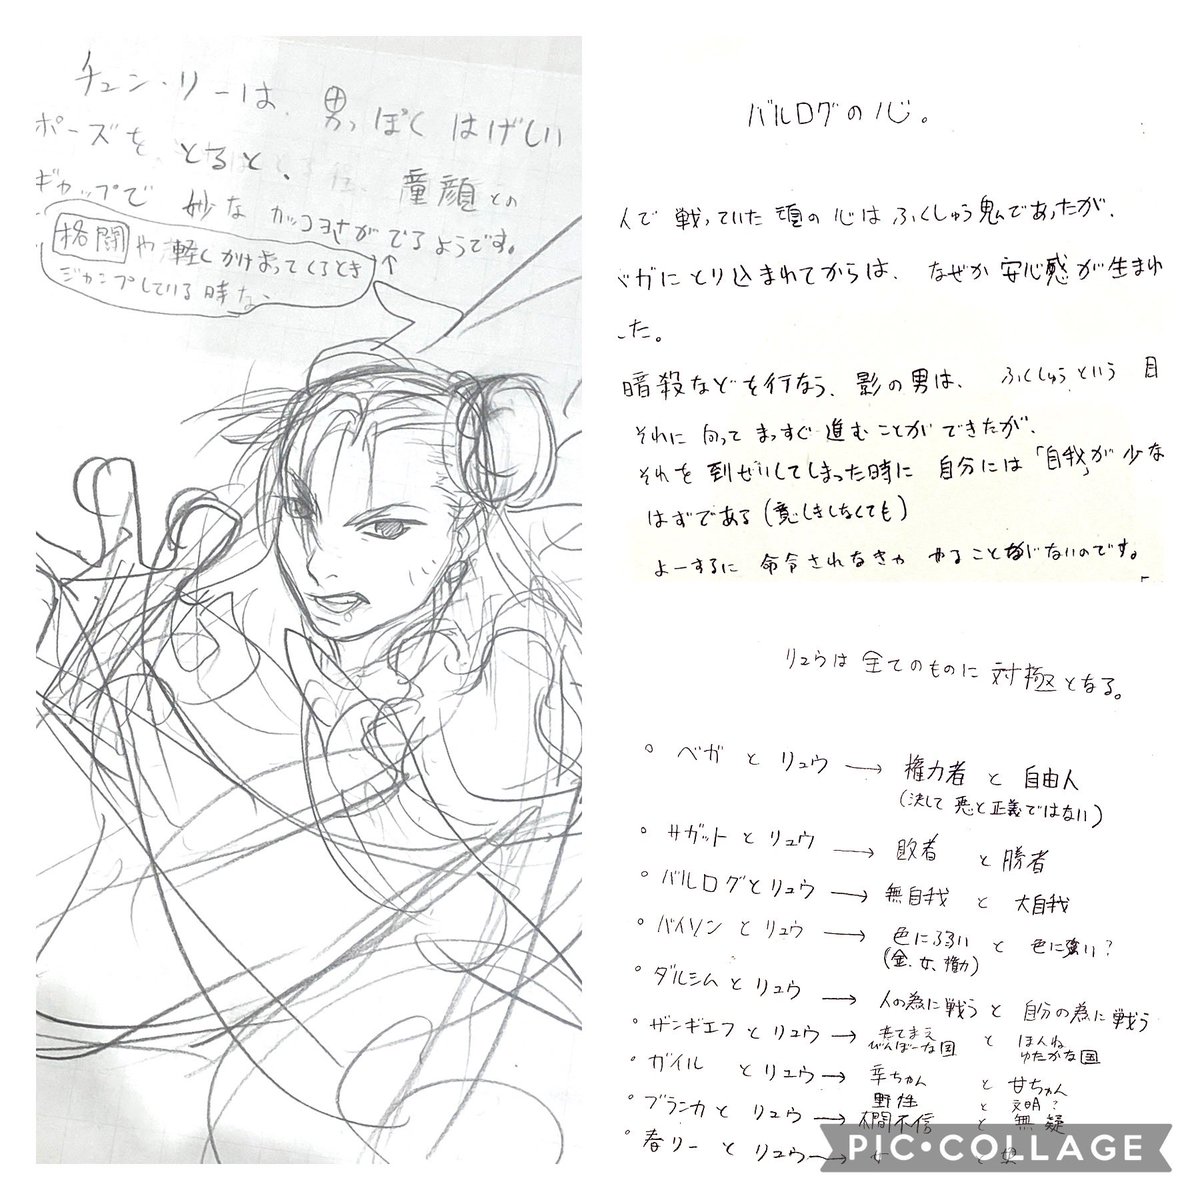 チュン・リーは、男っぽくはげしい
ポーズをとると、童顔との
ギャップで妙なカッコよさがでるようです。
格闘や軽くかけよってくるとき
ジャンプしている時な
バルログの心。
人で戦っていた頃の心はふくしゅう鬼であったが、
ベガにとり込まれてからは、なぜか安心感が生まれ
た。
暗殺などを行なう、影の男は、ふくしゅうという目
それに向ってまっすぐ進むことができたが、
それを到せいしてしまった時に自分には「自我」が少な
はずである(意しきしなくても)
よーするに命令されなきゃやることがないのです。
リュウは全てのものに対極となる。
○ ベガとリュウ → 権力者と自由人
(決して悪と正義ではない)
○ サガットとリュウ → 敗者と勝者
○ バルログとリュウ → 無自我と大自我
○ バイソンとリュウ → 色によわいと色に強い?
(金、女、権力)
○ ダルシムとリュウ → 人の為に戦うと自分の為に戦う
○ ザンギエフとリュウ → たてまえとほんね
びんぼーな国 ゆたかな国
○ ガイルとリュウ → 辛ちゃんと甘ちゃん
野性と文明?
○ ブランカとリュウ → 人間不信と無疑
○ 春リーとリュウ → 女と男
PIC•COLLAGE